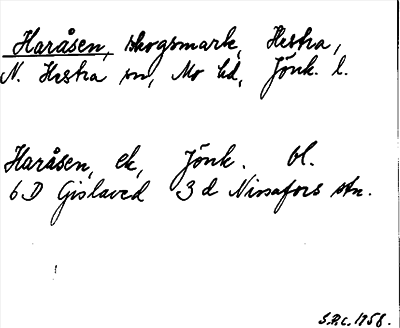 Haråsen, skogsmark, Hestra,
N. Hestra sn, Mo hd, Jönk. l.
Haråsen, ek, Jönk. bl.
6D Gislaved 3d Nissafors stn.
S.P.c. 1958.